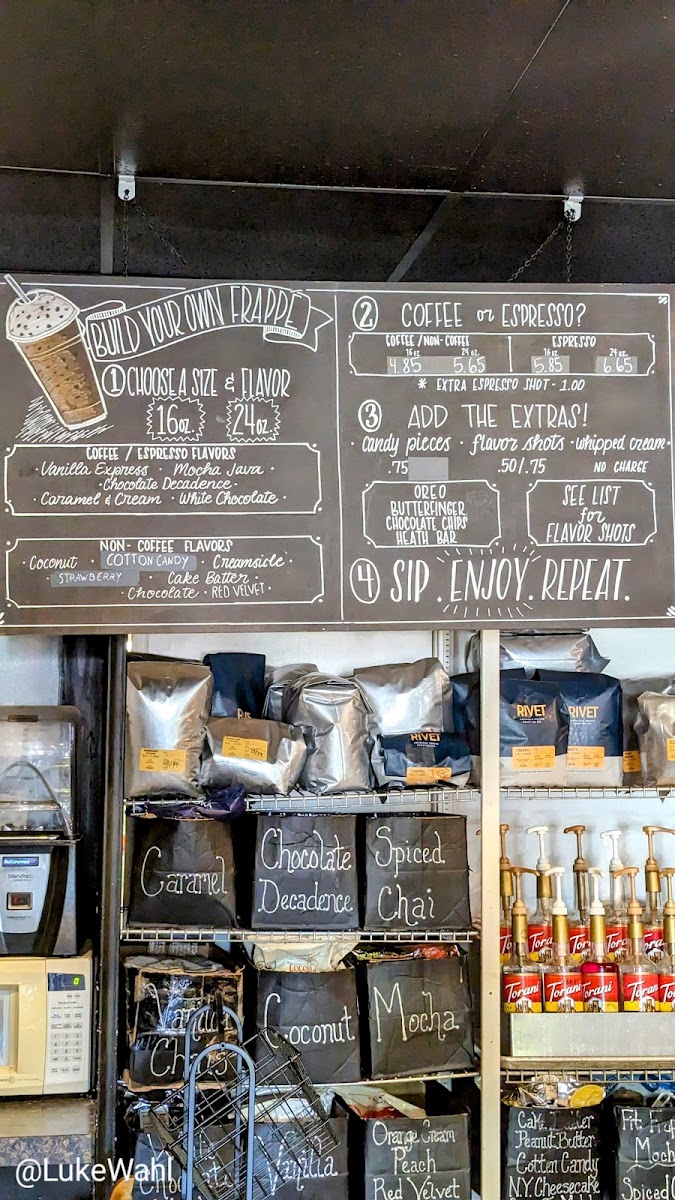 BUILD YOUR OWN FRAPPÉ
① CHOOSE A SIZE & FLAVOR
16oz. 24oz.
COFFEE / ESPRESSO FLAVORS
· Vanilla Express · Mocha Java ·
· Chocolate Decadence ·
· Caramel & Cream · White Chocolate ·
NON-COFFEE FLAVORS
· Coconut · COTTON CANDY · Creamsicle ·
STRAWBERRY · Cake Batter ·
· Chocolate · RED VELVET ·
② COFFEE or ESPRESSO?
COFFEE / NON-COFFEE ESPRESSO
16 oz. 24 oz. 16 oz. 24 oz.
4.85 5.65 5.85 6.65
* EXTRA ESPRESSO SHOT - 1.00
③ ADD THE EXTRAS!
· candy pieces · flavor shots · whipped cream ·
.75 .50/.75 NO CHARGE
OREO
BUTTERFINGER
CHOCOLATE CHIPS
HEATH BAR
SEE LIST
for
FLAVOR SHOTS
④ SIP. ENJOY. REPEAT.
RIVET
RIVET
RIVET
Caramel
Chocolate
Decadence
Spiced
Chai
Coconut
Mocha
Vanilla
Orange Cream
Peach
Red Velvet
blendtec
Torani
Torani
Torani
Torani
Torani
Peanut Butter
Cotton Candy
N.Y. Cheesecake
Mocha
Spiced
@LukeWahl